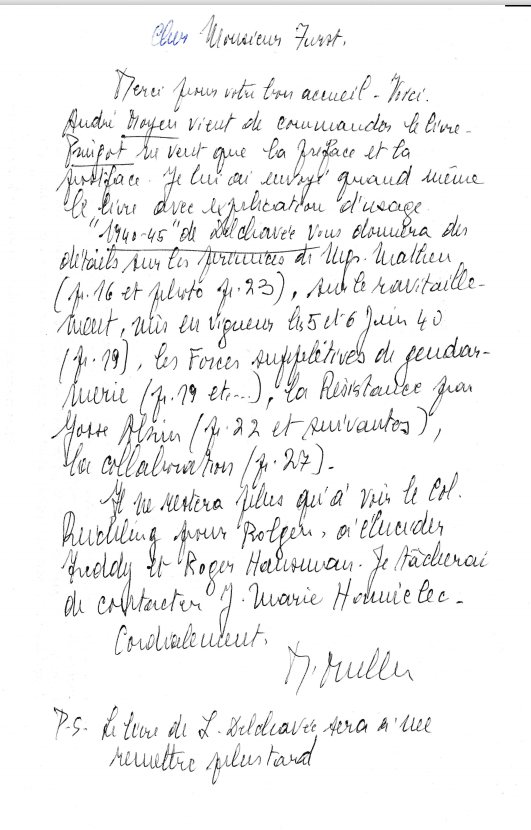 Cher Monsieur Furst,
Merci pour votre bon accueil - Voici.
André Moyen vient de commander le livre -
ne veut que la préface et la
postface. Je lui ai envoyé quand même
le livre avec explication d'usage
"1940-45" de Delchavée vous donnera des
détails sur les prémices de Mgr. Mathen
(p. 16 et photo p. 23), sur le ravitaille-
ment, mis en vigueur les 5 et 6 Juin 40
(p. 19), les Forces supplétives de gendar-
merie (p. 19 et...), la Résistance par
(p. 22 et suivantes),
la collaboration (p. 27) -
Il ne restera plus qu'à voir le Col.
pour Bolgen, à élucider
Freddy et Roger Hansman. Je tâcherai
de contacter J. Marie
Cordialement,
P.S. Le livre de L. Delchavée sera à me
remettre plus tard